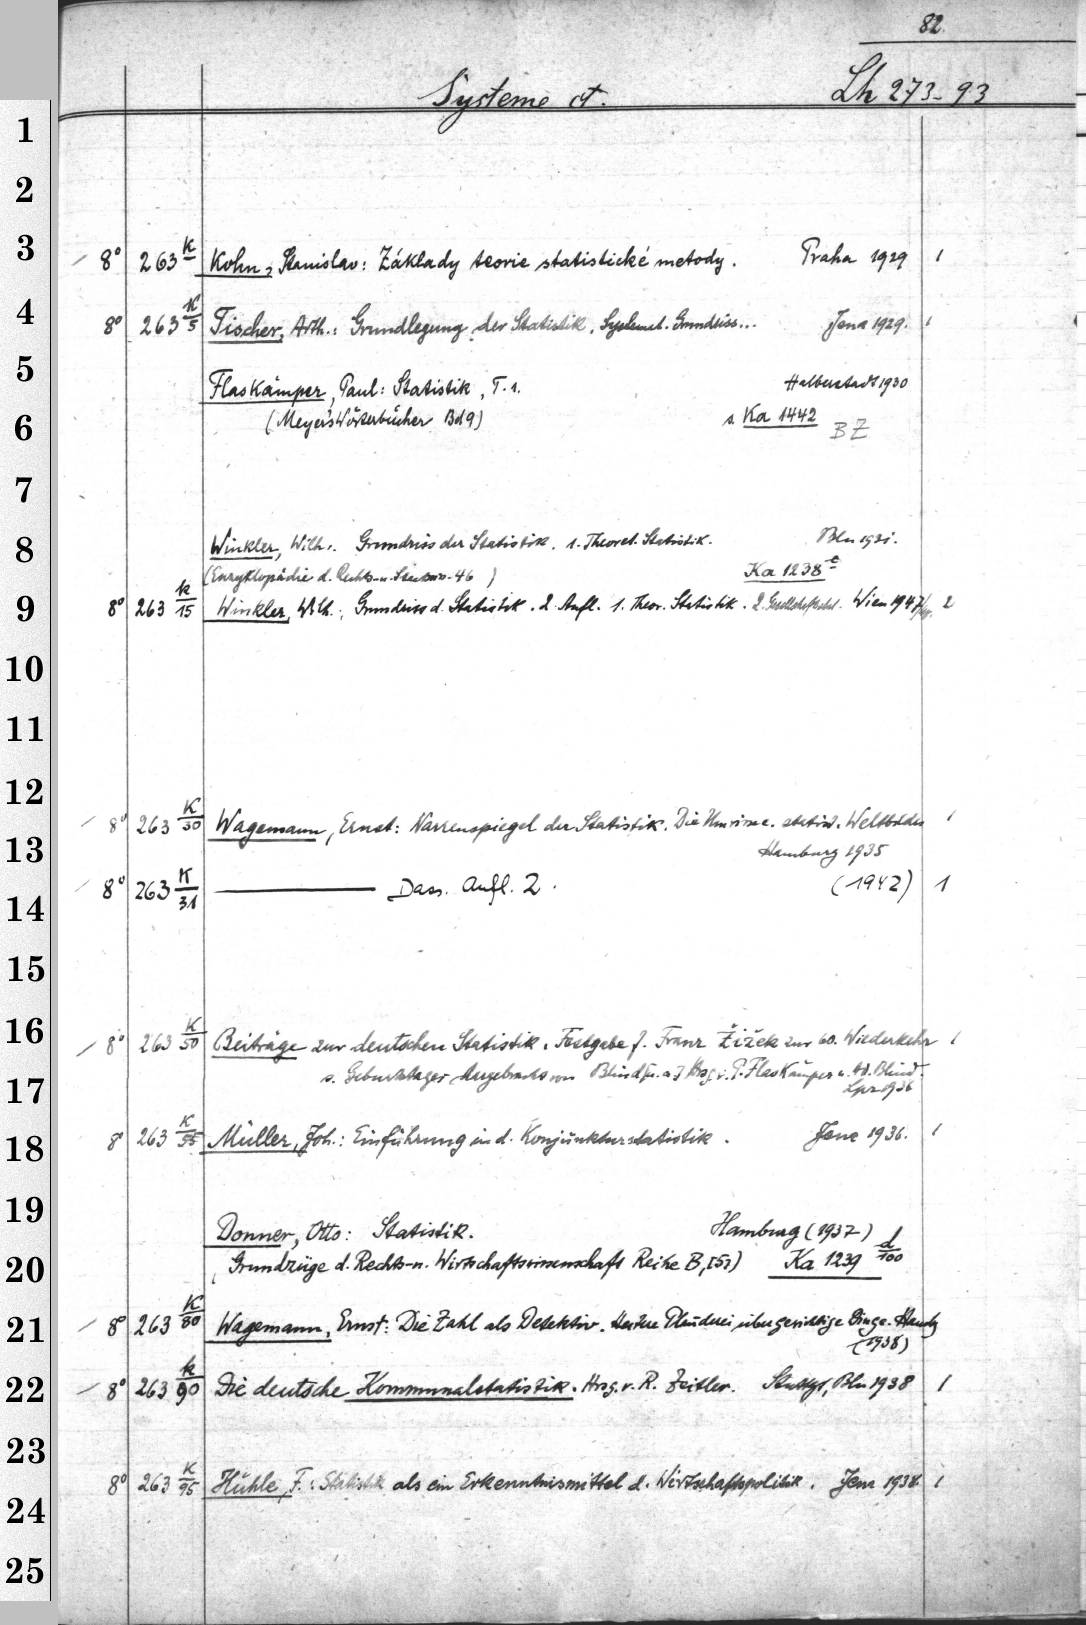 82.
Systeme ct. Lh 273-93
1
2
3 8° 263 K Kohn, Stanislav: Základy teorie statistické metody. Praha 1929 1
4 8° 263 K/5 Fischer, Arth.: Grundlegung der Statistik. Systemat. Grundriss... Jena 1929. 1
5 Flaskämper, Paul: Statistik, T. 1. Halberstadt 1930
6 (Meyer's Wörterbücher Bd 9) s. Ka 1442 BZ
7
8 Winkler, Wilh.: Grundriss der Statistik. 1. Theoret. Statistik. Bln 1931.
(Enzyklopädie d. Rechts- u. Staatsw. 46) Ka 1238 e
9 8° 263 k/15 Winkler, Wilh.: Grundriss d. Statistik. 2. Aufl. 1. Theor. Statistik. 2. Gesellschaftsstat. Wien 1947/48. 2
10
11
12 8° 263 K/30 Wagemann, Ernst: Narrenspiegel der Statistik. Die Umrisse e. statist. Weltbildes 1
13 Hamburg 1935
14 8° 263 K/31 ——— Dass. Aufl. 2. (1942) 1
15
16 8° 263 K/50 Beiträge zur deutschen Statistik. Festgabe f. Franz Žižek zur 60. Wiederkehr 1
17 s. Geburtstages dargebracht von Blind [u. a.] Hrsg. v. P. Flaskämper u. Ad. Blind.
Lpz 1936
18 8° 263 K/55 Müller, Joh.: Einführung in d. Konjunkturstatistik. Jena 1936. 1
19 Donner, Otto: Statistik. Hamburg (1937)
20 (Grundzüge d. Rechts- u. Wirtschaftswissenschaft Reihe B, [5]) Ka 1239 d/100
21 8° 263 K/80 Wagemann, Ernst: Die Zahl als Detektiv. Heitere Plauderei über gewichtige Dinge. Hamb
(1938)
22 8° 263 k/90 Die deutsche Kommunalstatistik. Hrsg. v. R. Zeitler. Stuttgt, Bln 1938 1
23
24 8° 263 K/95 Hühle, F.: Statistik als ein Erkenntnismittel d. Wirtschaftspolitik. Jena 1938. 1
25